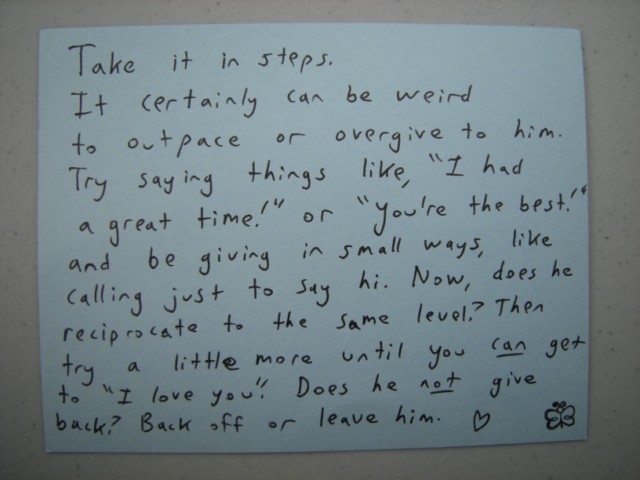 Take it in steps.
It certainly can be weird
to outpace or overgive to him.
Try saying things like, "I had
a great time!" or "You're the best!"
and be giving in small ways, like
calling just to say hi. Now, does he
reciprocate to the same level? Then
try a little more until you can get
to "I love you". Does he not give
back? Back off or leave him.